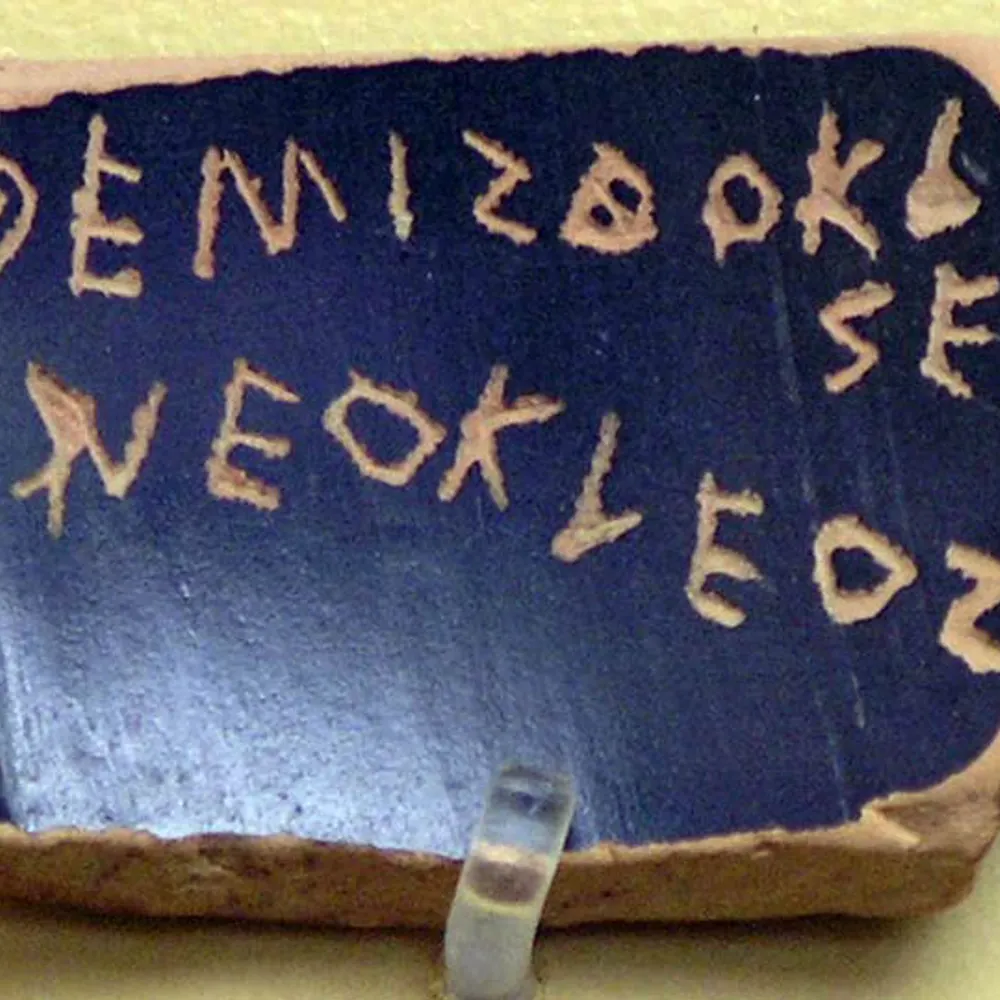 ΘΕΜΙΣΘΟΚΛ
ΣΕ
ΝΕΟΚΛΕΟΣ